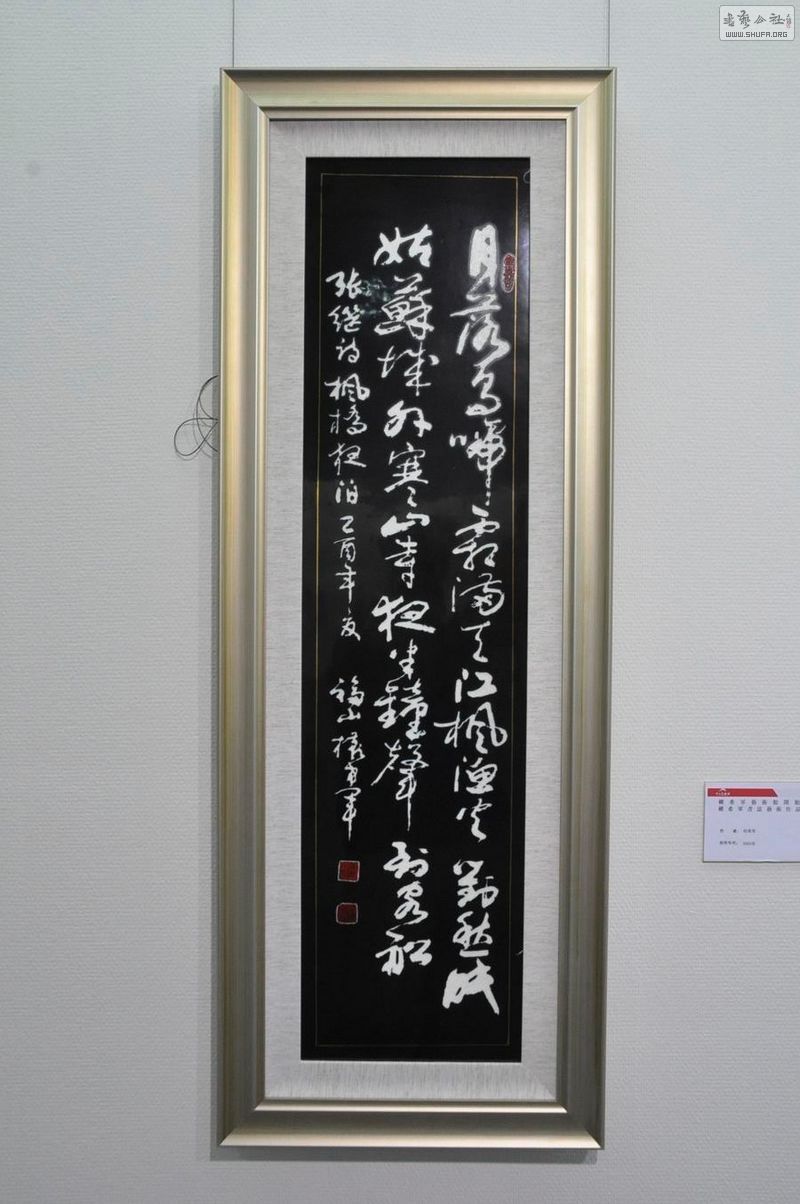 月落乌啼霜满天江枫渔火对愁眠
姑苏城外寒山寺夜半钟声到客船
张继诗枫桥夜泊乙酉年夏
书艺公社
WWW.SHUFA.ORG